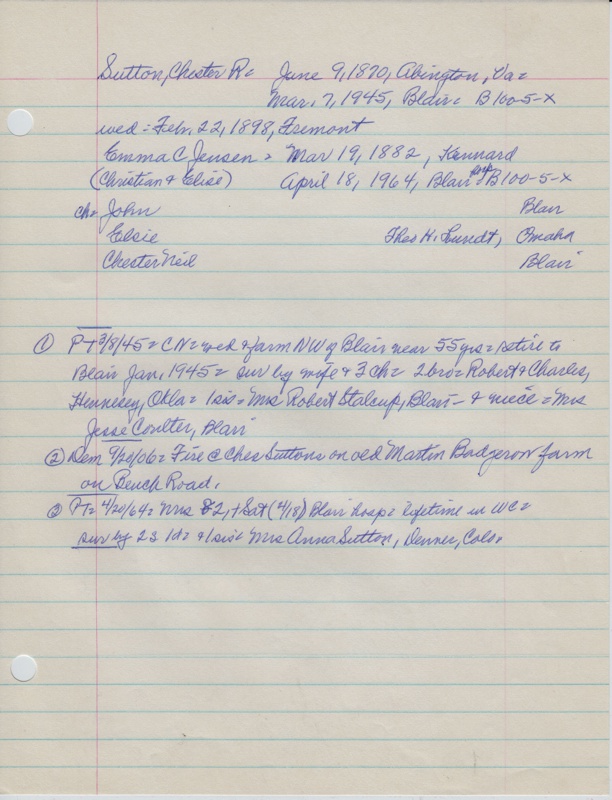 Sutton, Chester R= June 9, 1870, Abington, Va=
Mar. 7, 1945, Blair= B100-5-X
wed = Febr. 22, 1898, Fremont
Emma C Jensen = Mar 19, 1882, Kennard
(Christian & Elise) April 18, 1964, Blair hosp= B100-5-X
ch= John Blair
Elsie Theo H. Lundt, Omaha
Chester Neil Blair
① PT 3/8/45 = CN = wed & farm NW of Blair near 55 yrs = retire to
Blair Jan, 1945 = sur by wife & 3 ch = 2 bro = Robert & Charles,
Hennesey, Okla = 1 sis = Mrs Robert Stalcup, Blair - & niece = Mrs
Jesse Coulter, Blair
② Dem 9/20/06 = Fire @ Ches Suttons on old Martin Badgerow farm
on Bench Road.
③ PT = 4/20/64 = Mrs 82, + Sat (4/18) Blair hosp = lifetime in WC =
sur by 2s 1d = & 1 sis = Mrs Anna Sutton, Denver, Colo=